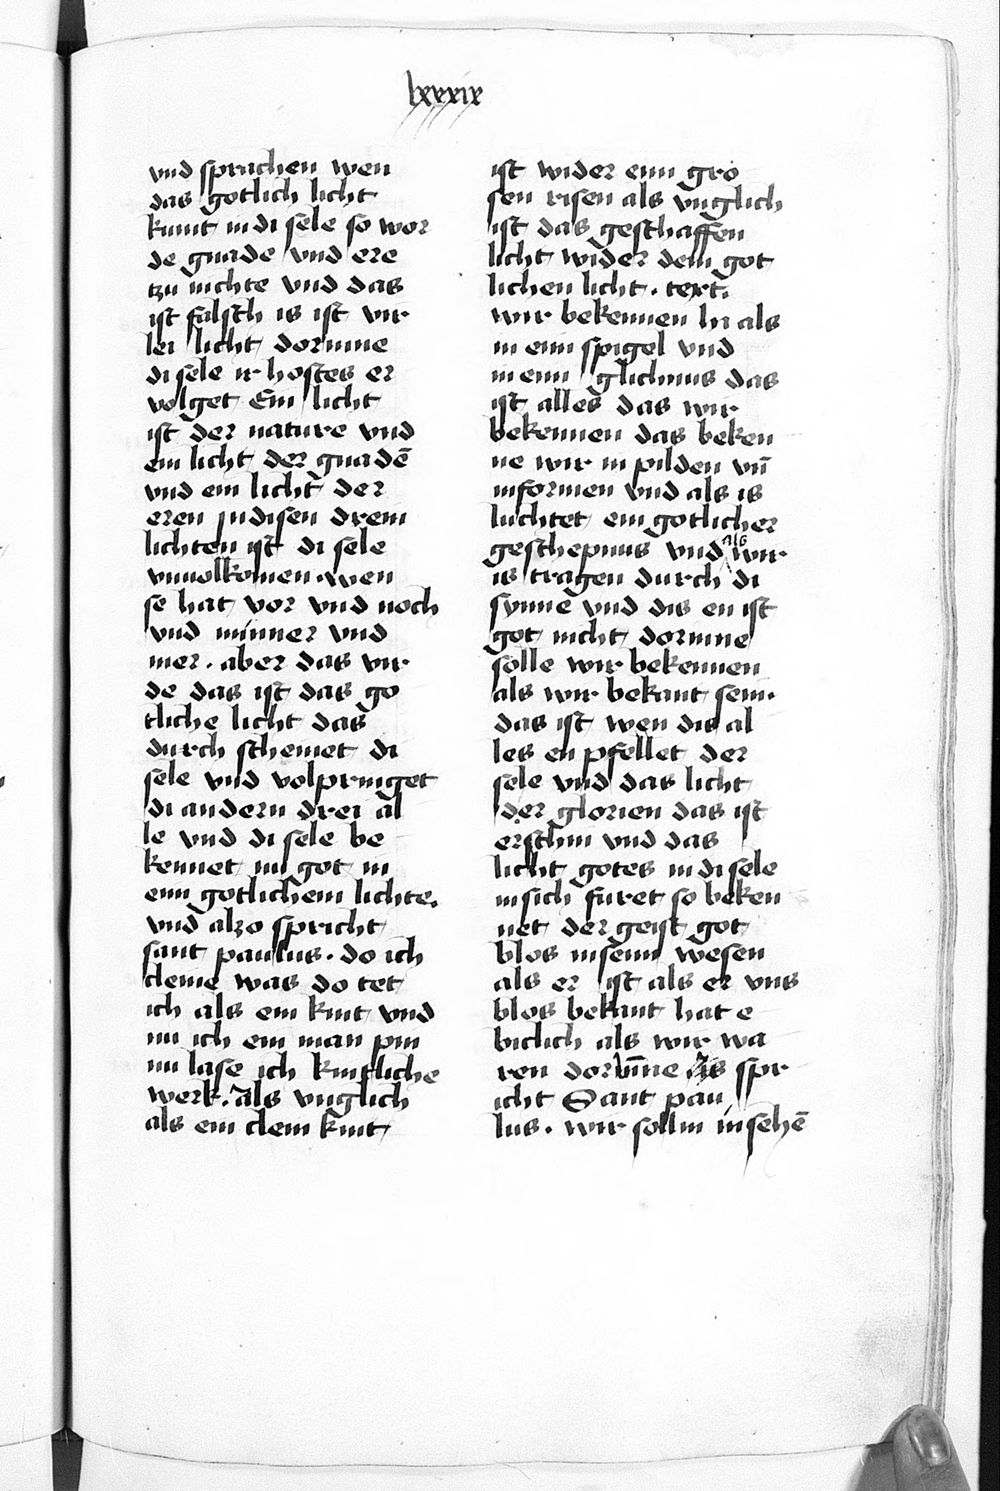 lxxxix
vnd sprachen wen
das gotlich licht
kumt in di sele so wor
de gnade vnd ere
tzu nichte vnd das
ist falsch is ist vir
lei licht dorinne
di sele ir hostes er
volget Ein licht
ist der nature vnd
ein licht der gnadē
vnd ein licht der
eren In disen drein
lichten ist di sele
vnuolkomen. wen
se hat vor vnd noch
vnd minner vnd
mer. aber das vir
de das ist das go
tliche licht das
durch scheinet di
sele vnd volpringet
di andern drei al
le vnd di sele be
kennet nu got in
eim gotlichem lichte.
vnd alzo spricht
sant paulus. do ich
cleine was do tet
ich als ein kint vnd
nu ich ein man pin
nu lase ich kintliche
werk. Als vnglich
als ein clein kint
ist wider einn gro
sen risen als vnglich
ist das geschaffen
licht wider dem got
lichen licht. text.
wir bekennen hi als
in einn spigel vnd
in einn glichnus das
ist alles das wir
bekennen das beken
ne wir in pilden vn̄
informen vnd als is
luchtet ein gotlicher
geschepnus vnd als wir
is tragen durch di
synne vnd dis en ist
got nicht dorinne
solle wir bekennen
als wir bekant sein.
das ist wen dis al
les en pfellet der
sele vnd das licht
der glorien das ist
erschin vnd das
licht gotes in di sele
in sich furet so beken
net der geist got
blos in seinn wesen
als er ist als er vns
blos bekant hat e
biclich als wir wa
ren dorinne Als spr
icht Sant pau
lus. wir solln in sehē